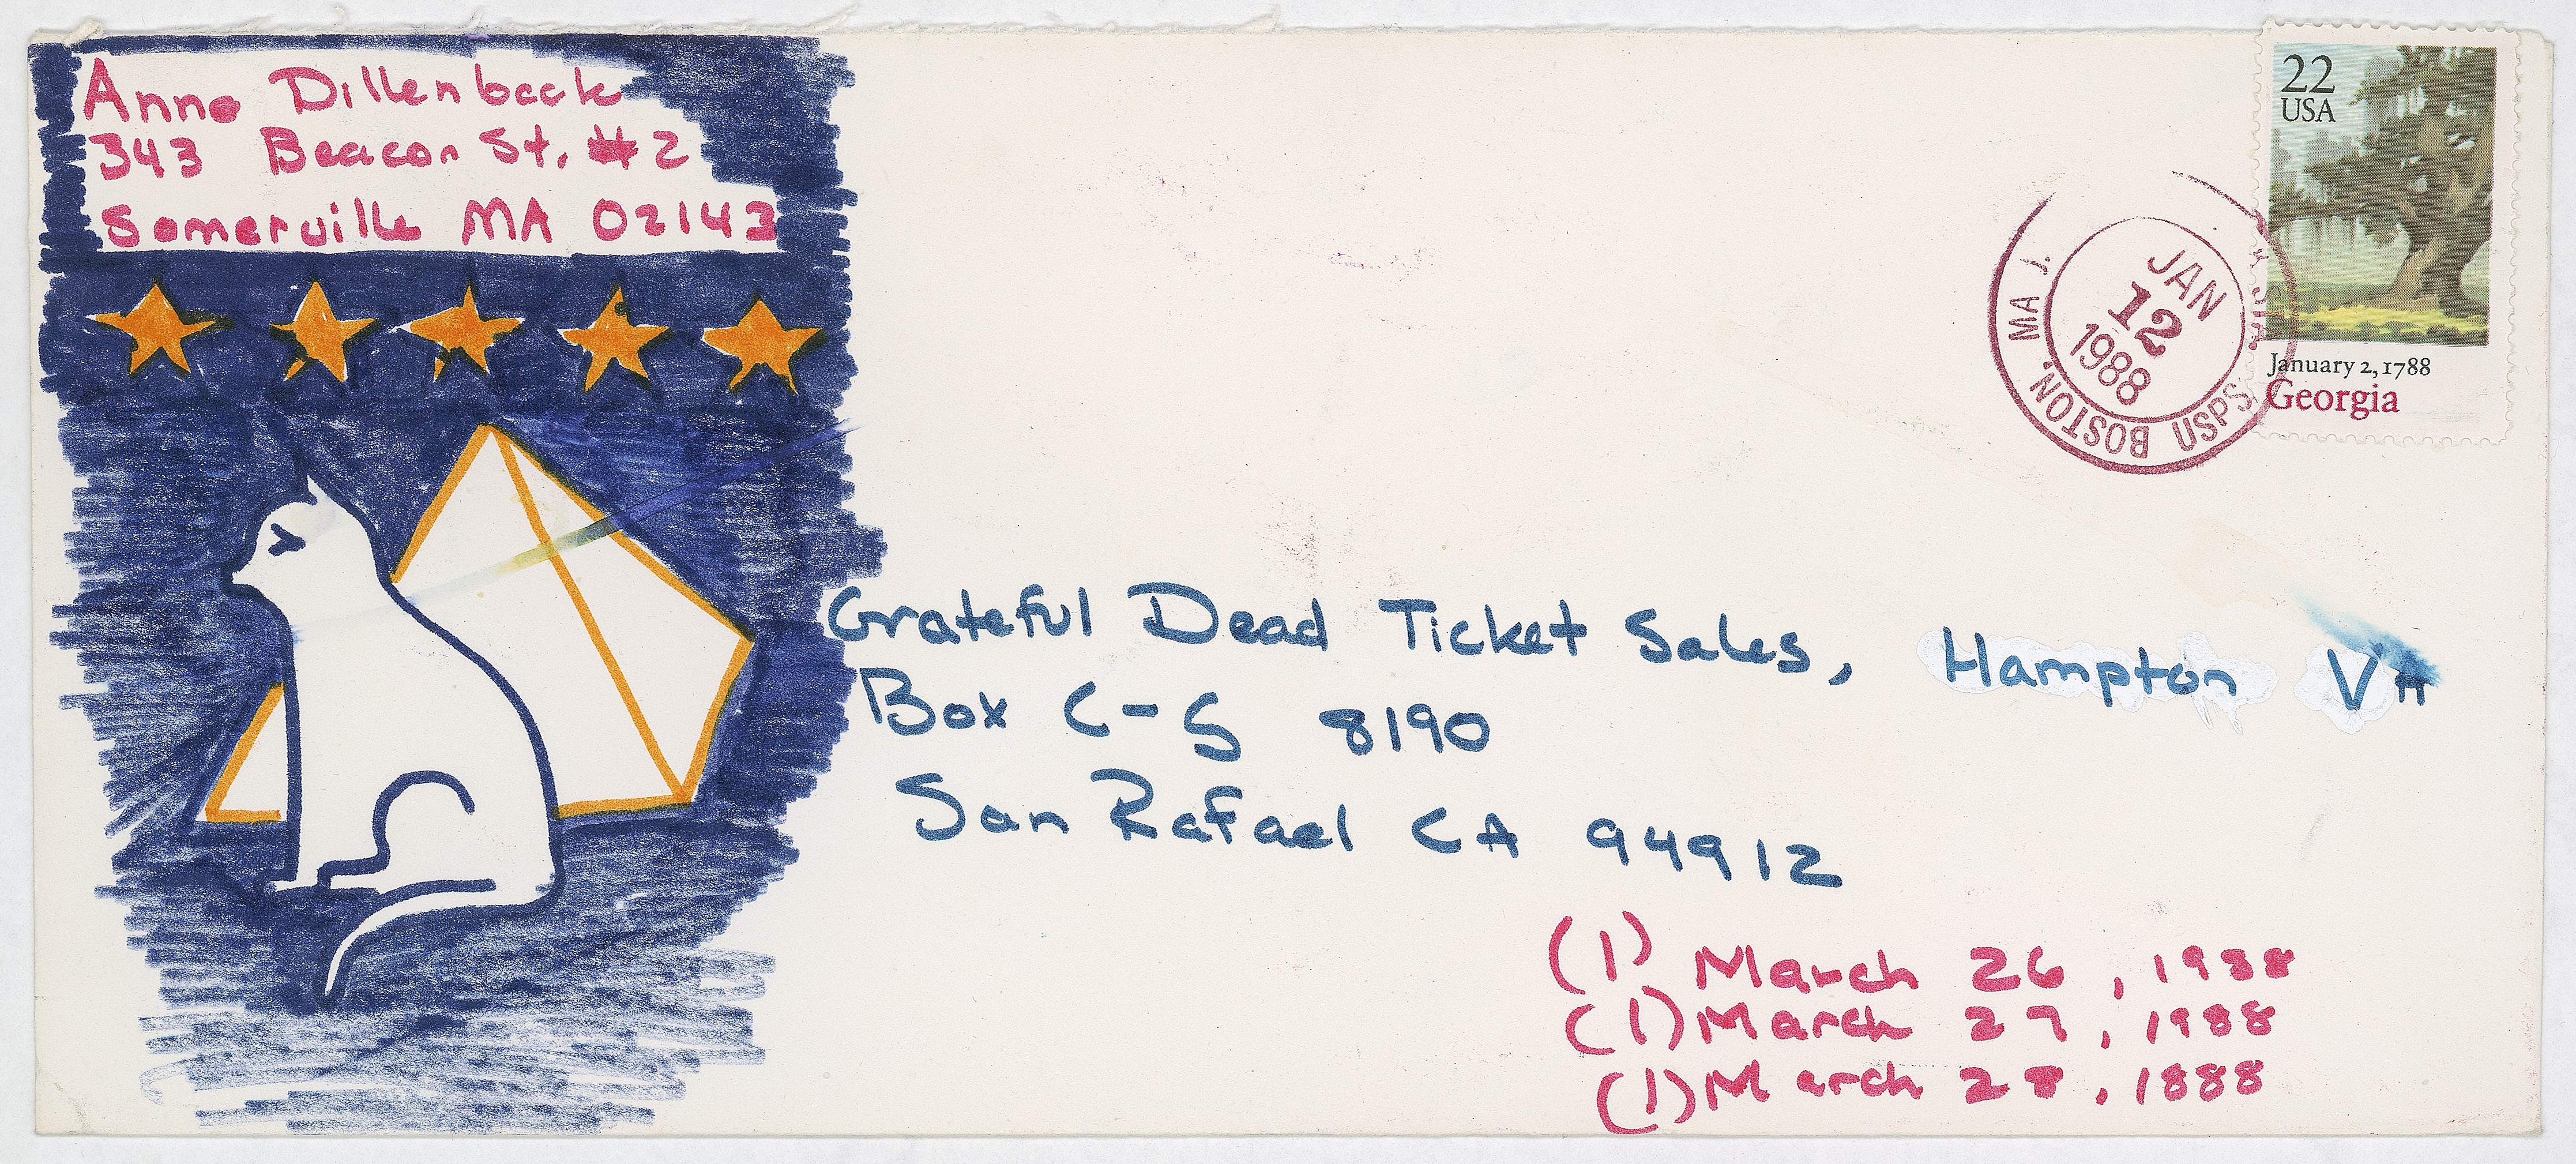 Anne Dillenback
343 Beacon St. #2
Somerville MA 02143
22
USA
January 2, 1788
Georgia
JAN
12
1988
BOSTON, MA
USPS
Grateful Dead Ticket Sales, Hampton VA
Box C-S 8190
San Rafael CA 94912
(1) March 26, 1988
(1) March 27, 1988
(1) March 28, 1888